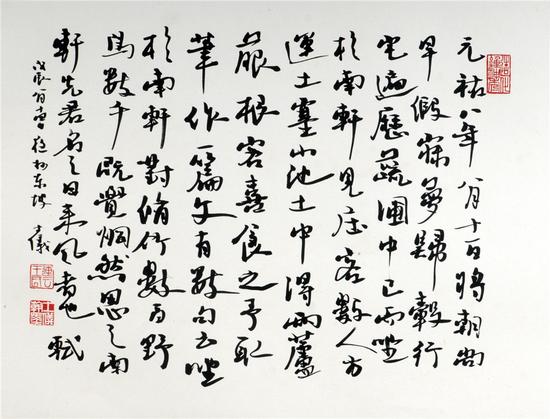 元祐八年八月十一日將朝尚
早假寐夢歸縠行
宅遍歷蔬圃中已而坐
於南軒見庄客數人方
運土塞小池土中得兩蘆
菔根客喜食之予取
筆作一篇文有數句云坐
於南軒對脩竹數百野
鳥數千既覺惘然思之南
軒先君名之曰來風者也 軾
東坡